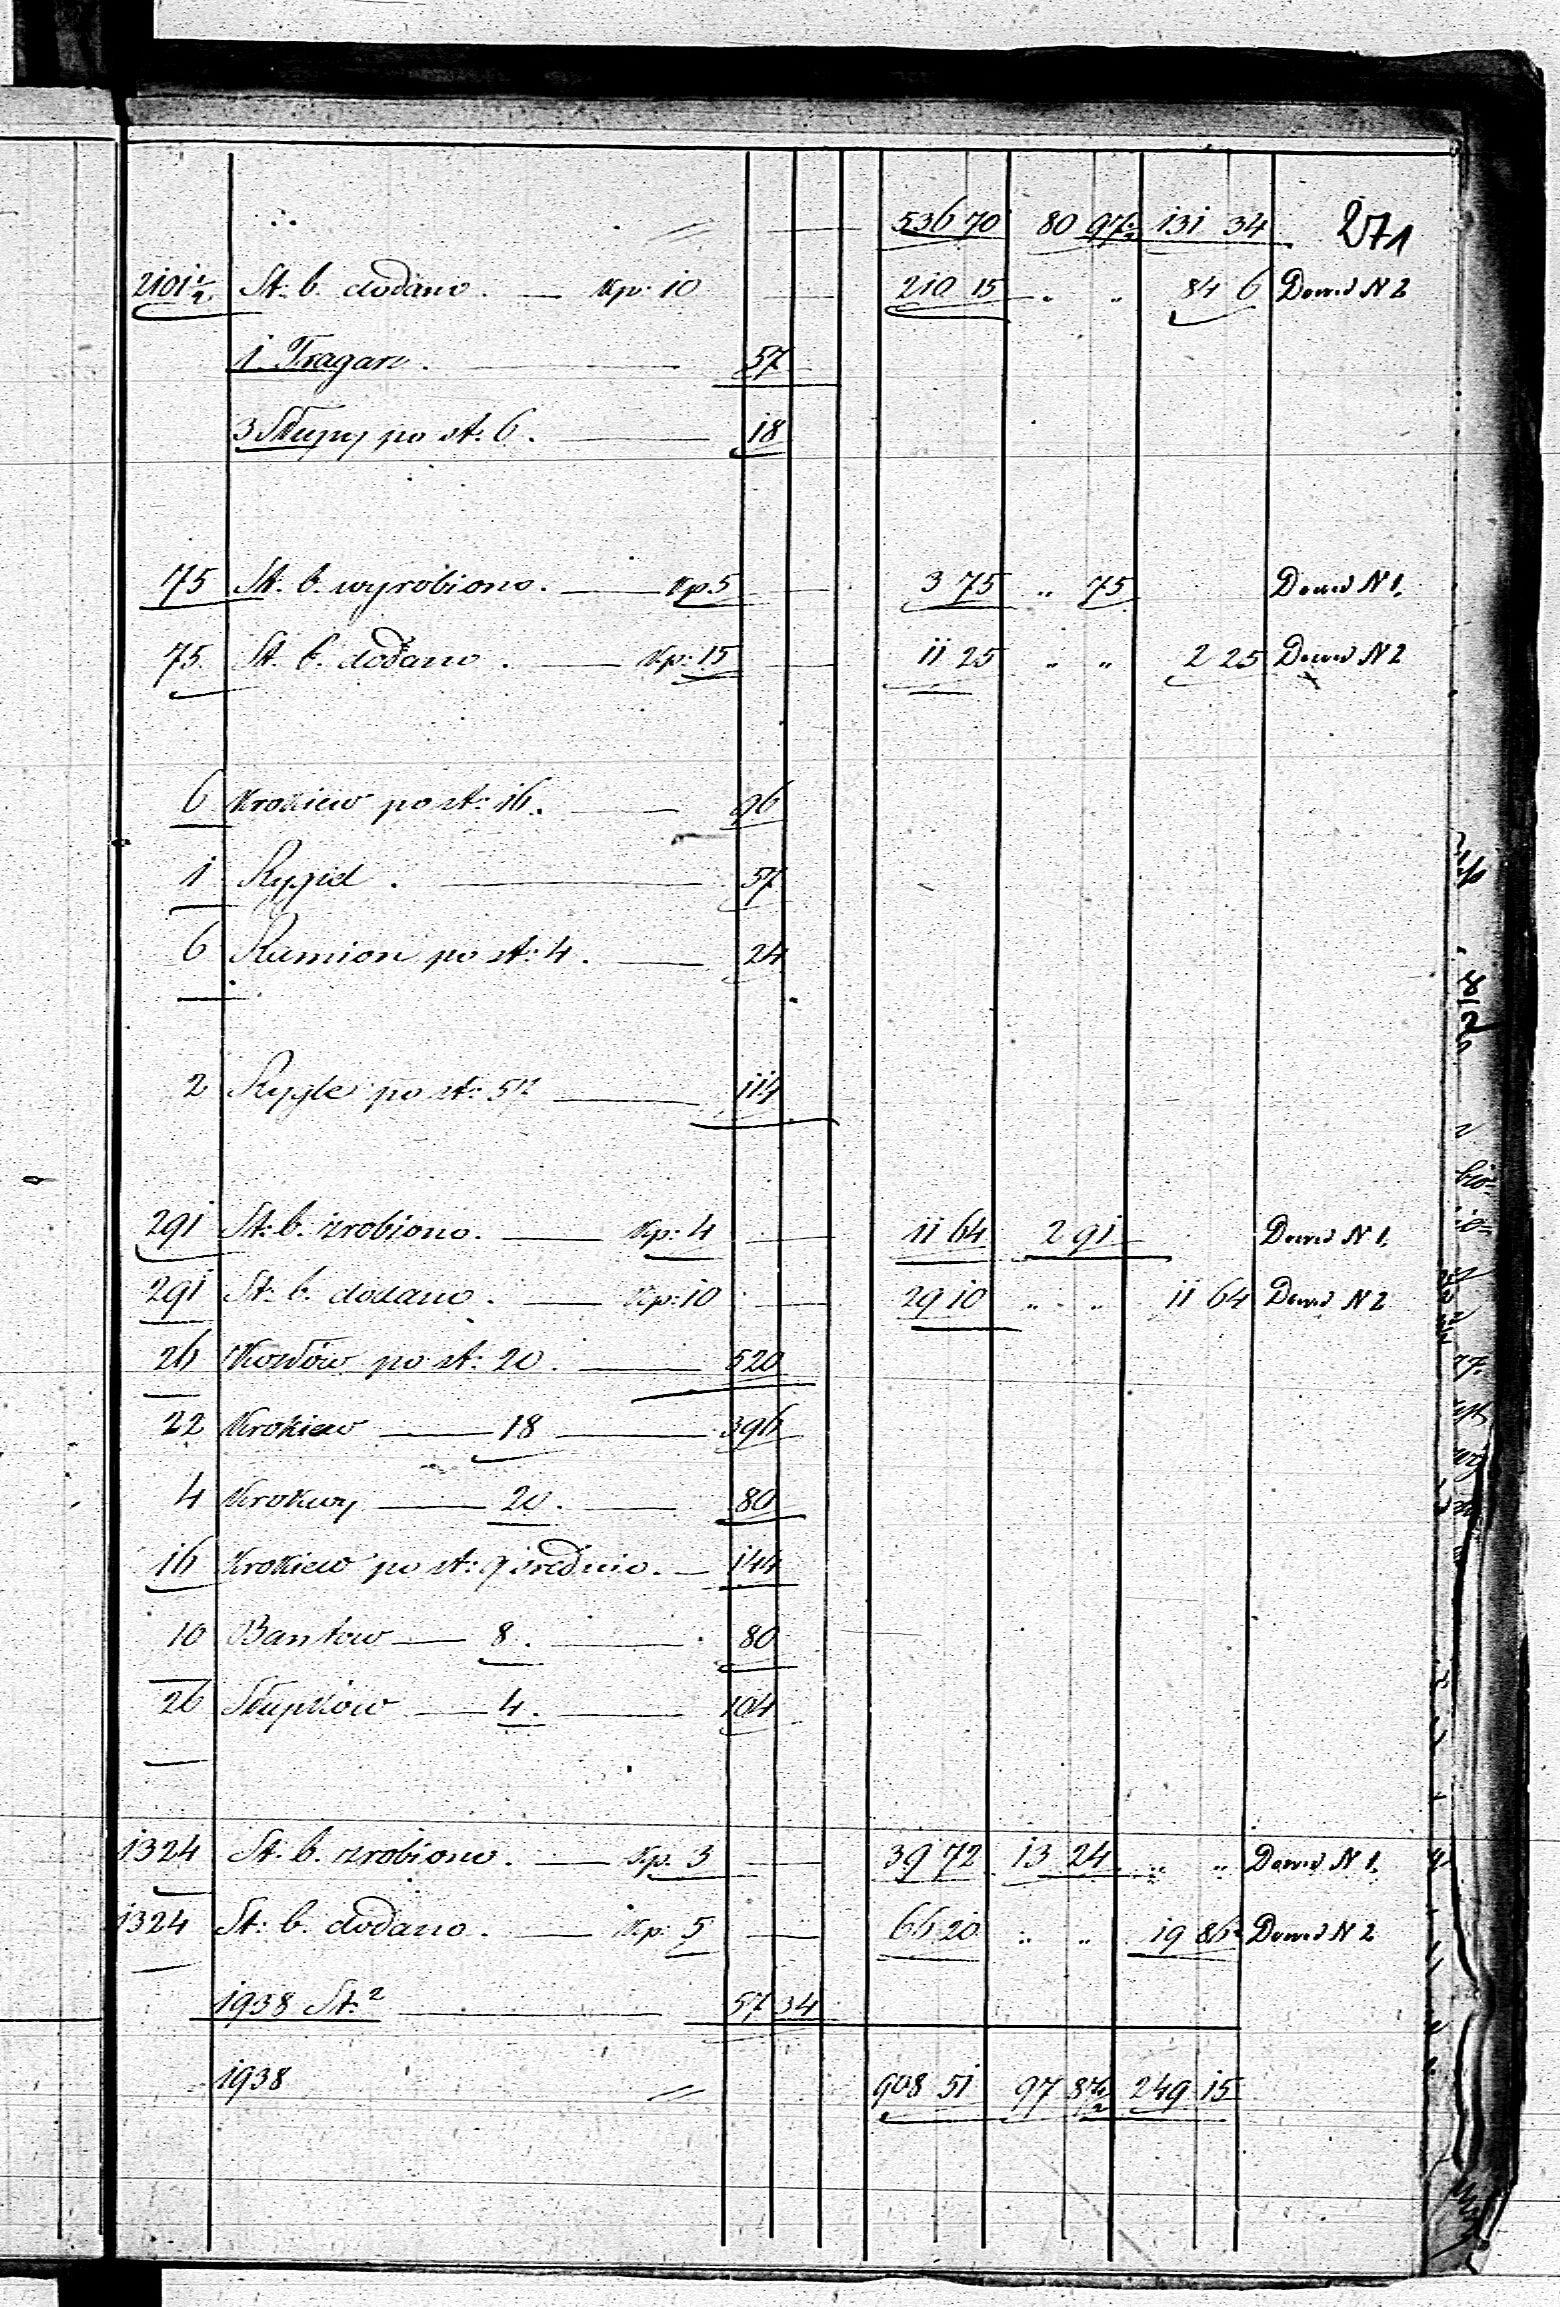 271
536 70 80 97½ 131 34
2101½ St: b. dodano. — Kp: 10 — 210 15 " " 84 6 Dowód N 2
1 Tragarz. — 57
3 Słupy po st: 6. — 18
75 St: b. wyrobiono. — Kp 5 — 3 75 " 75 Dowód N 1.
75 St. b. dodano. — Kp: 15 — 11 25 " " 2 25 Dowód N 2
6 Krokiew po st: 16. — 96
1 Rygiel. — 57
6 Ramion po st: 4. — 24
2 Rygle po st: 57 — 114
291 St: b. zrobiono. — Kp: 4 — 11 64 2 91 Dowód N 1.
291 St: b. dodano. — Kp: 10 — 29 10 " " 11 64 Dowód N 2
26 Kozłów po st: 20. — 520
22 Krokiew — 18 — 396
4 Krokwy — 20. — 80
16 Krokiew po st: 9 średnio. — 144
10 Bantow — 8. — 80
26 Słupków — 4. — 104
1324 St. b. zrobiono. — Kp. 3 — 39 72 13 24 " " Dowód N 1.
1324 St: b. dodano. — Kp: 5 — 66 20 " " 19 86 Dowód N 2
1938 St: 2 — 57 34
1938 908 51 97 87½ 249 15